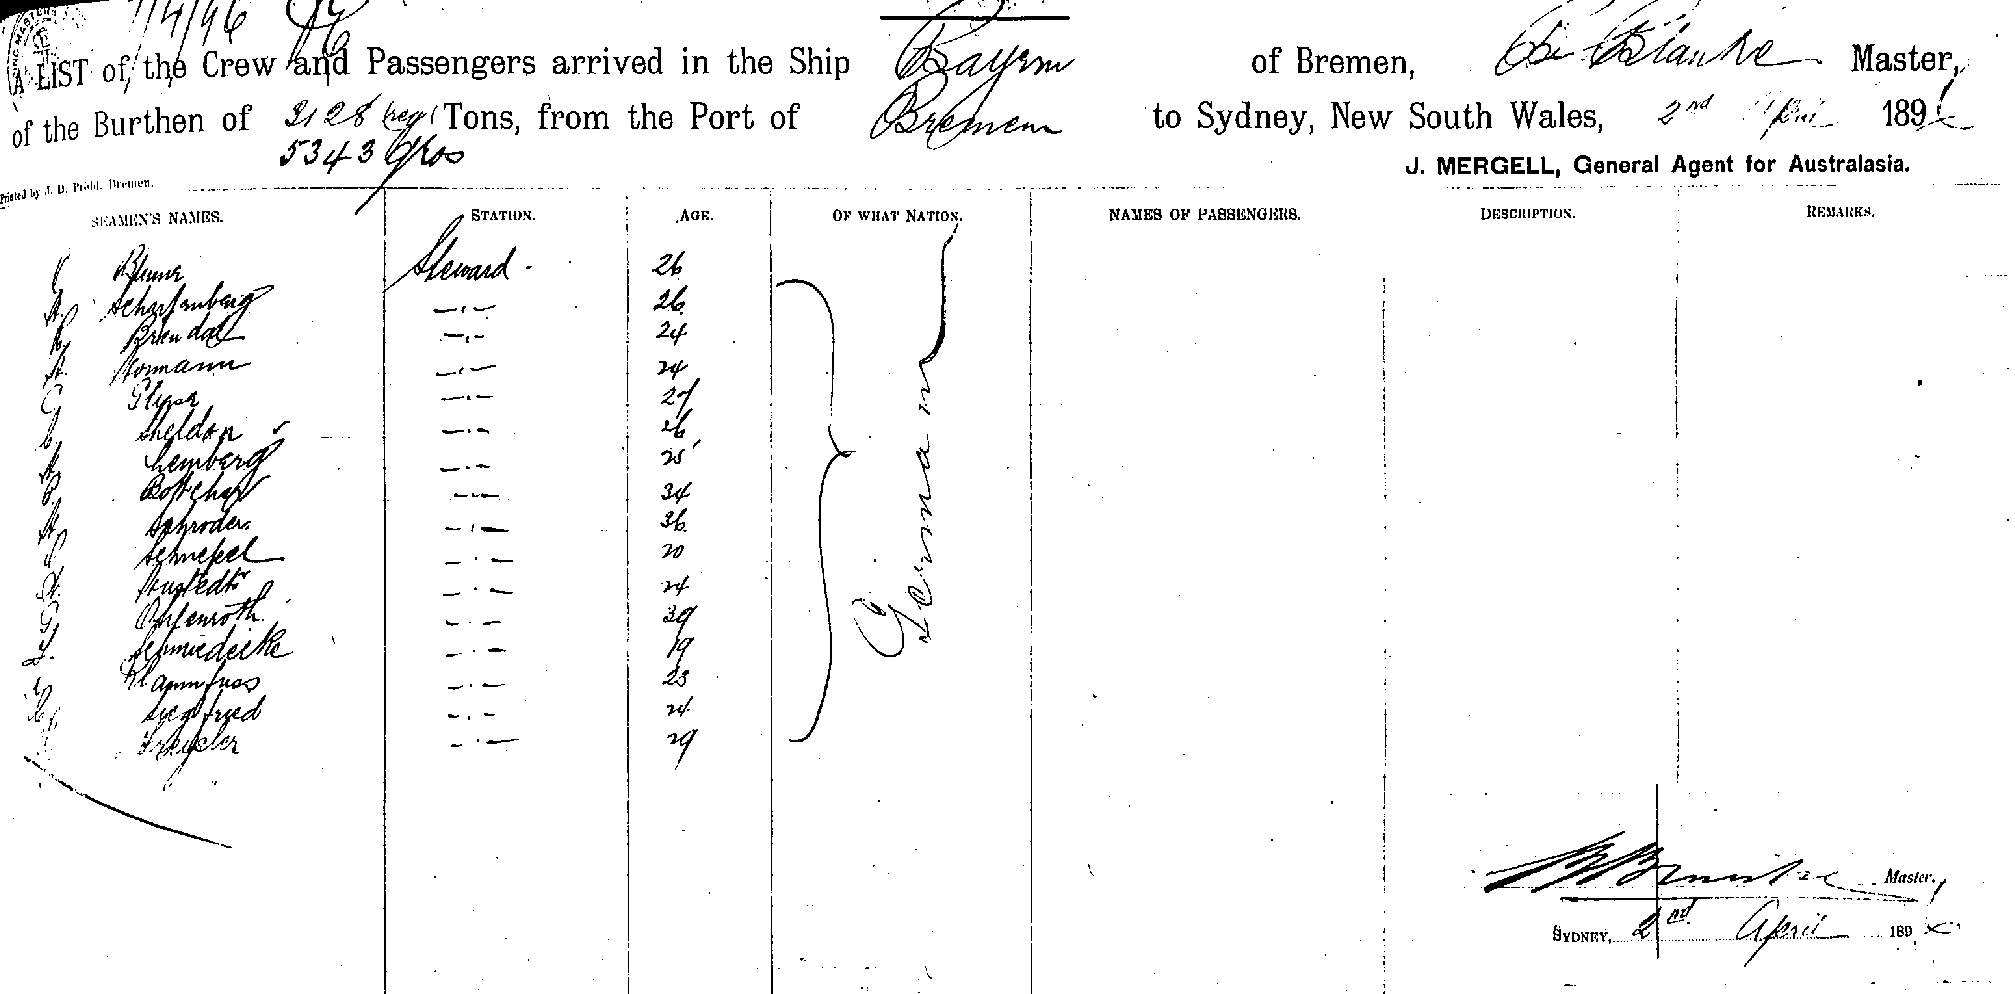 7/4/96
A LIST of the Crew and Passengers arrived in the Ship Bayern of Bremen, Master,
of the Burthen of 3128 Tons, from the Port of Bremen to Sydney, New South Wales, 2nd April 189
5343 Gros
J. MERGELL, General Agent for Australasia.
Printed by J. D. Prahl. Bremen.
SEAMEN'S NAMES. STATION. AGE. OF WHAT NATION. NAMES OF PASSENGERS. DESCRIPTION. REMARKS.
Steward 26
Scharfenberg —·— 26
Brendal —·— 24
Hormann —·— 24
—·— 27
Sheldon —·— 26
Lemberg —·— 25
Bottcher —·— 34
Schroder —·— 36
Schnepel —·— 20
—·— 24
Ohlenroth —·— 39
Schmiedecke —·— 19
Klapmfuss —·— 23
Siegfried —·— 24
—·— 29
German
Master.
SYDNEY, 2nd April 189